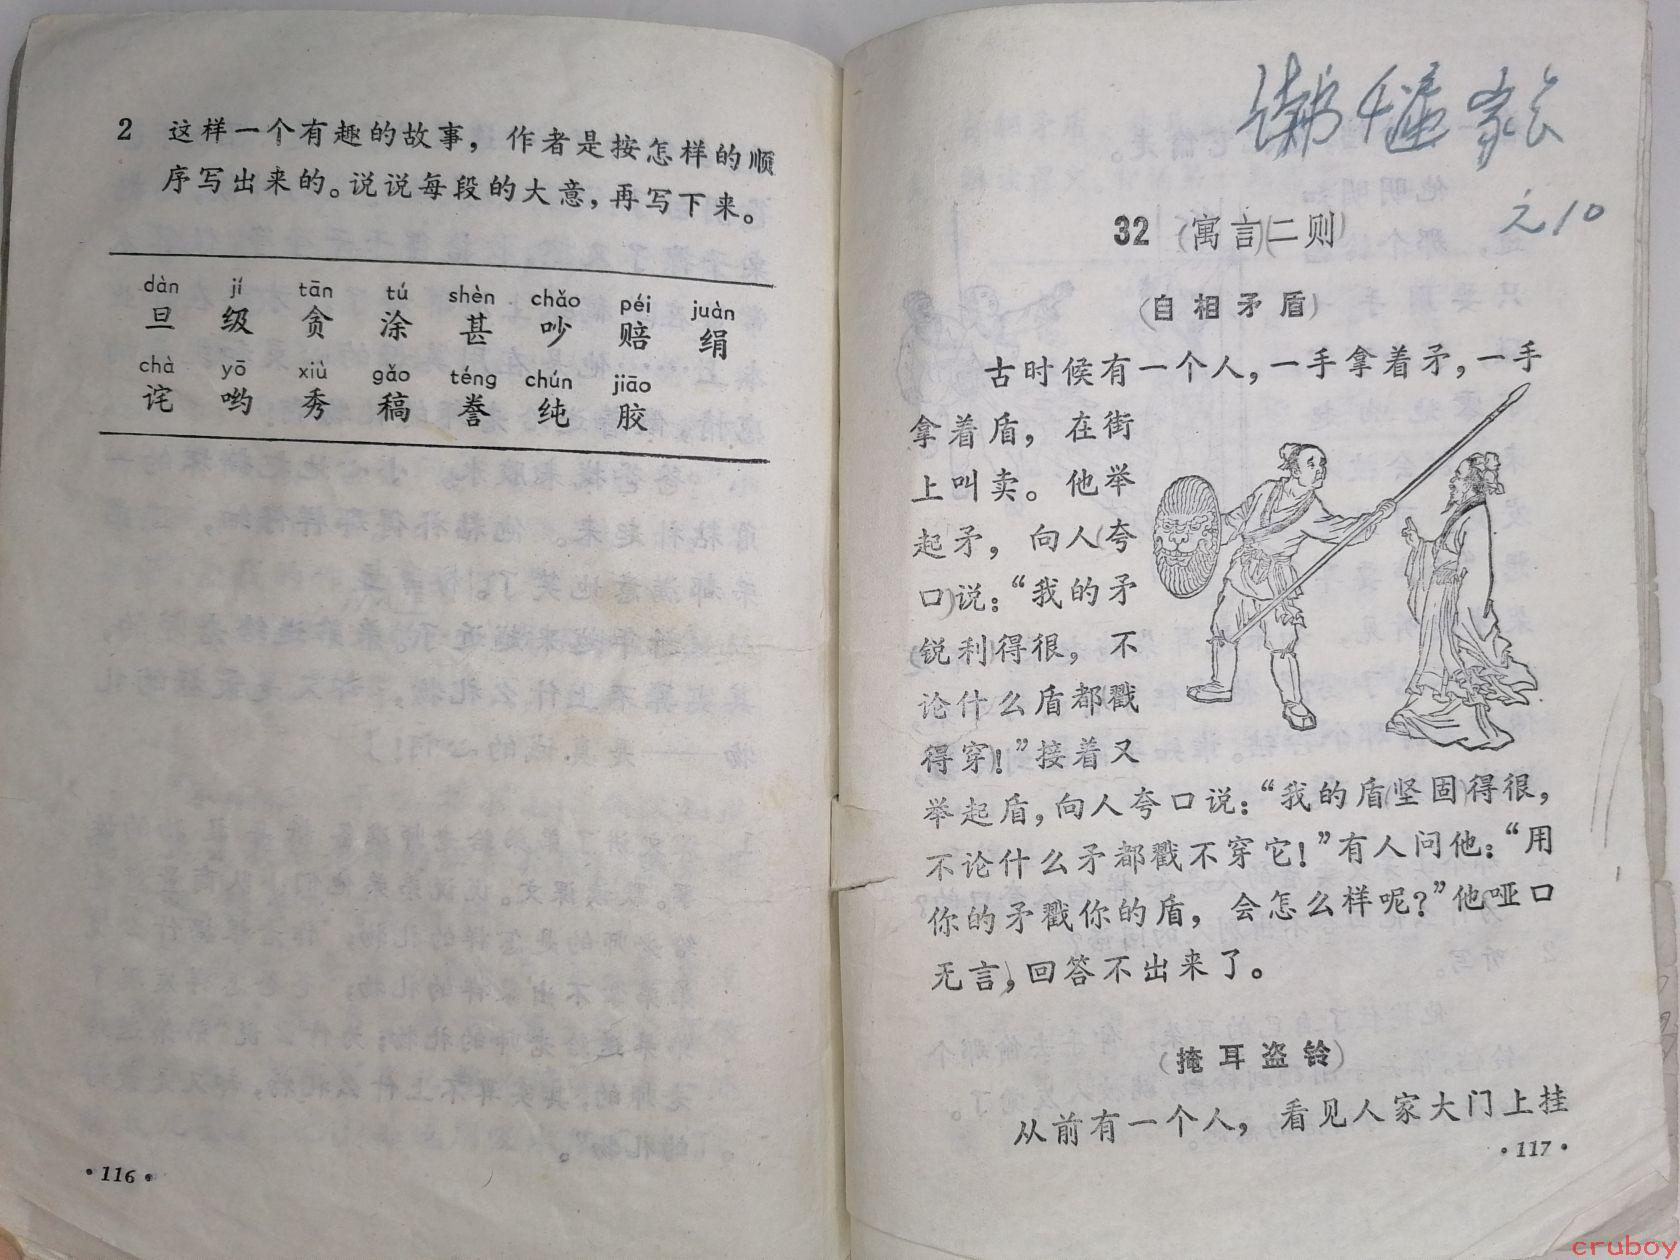 2 这样一个有趣的故事，作者是按怎样的顺
序写出来的。说说每段的大意，再写下来。
dàn jí tān tú shèn chǎo péi juàn
旦 级 贪 涂 甚 吵 赔 绢
chà yō xiù gǎo téng chún jiāo
诧 哟 秀 稿 誊 纯 胶
·116·
元10
32 (寓言)(二则)
(自相矛盾)
古时候有一个人，一手拿着矛，一手
拿着盾，在街
上叫卖。他举
起矛，向人(夸
口)说：“我的矛
(锐利)得很，不
论什么盾都戳
得穿！”接着又
举起盾，向人夸口说：“我的盾(坚固)得很，
不论什么矛都戳不穿它！”有人问他：“用
你的矛戳你的盾，会怎么样呢？”他(哑口
无言)，回答不出来了。
(掩耳盗铃)
从前有一个人，看见人家大门上挂
·117·
cruboy